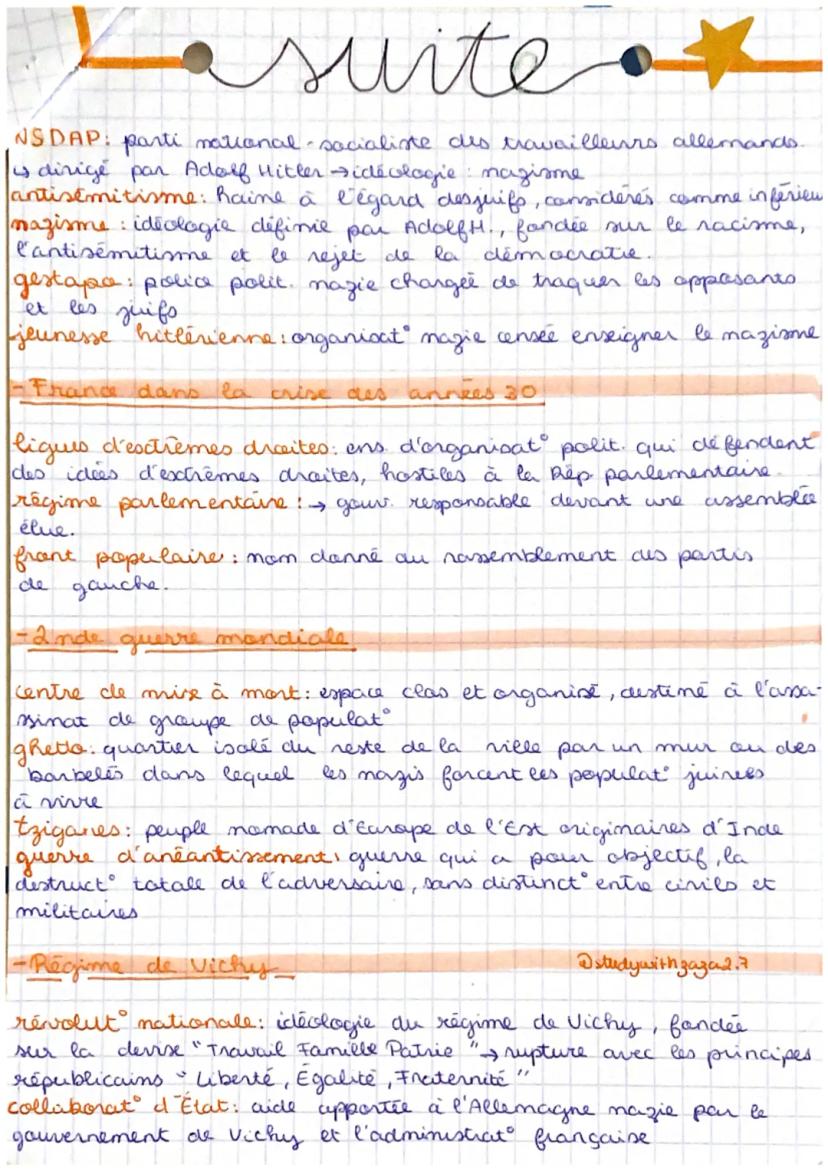 suite
NSDAP: parti national-socialiste des travailleurs allemands.
↳ dirigé par Adolf Hitler → idéologie : nazisme
antisémitisme: haine à l'égard des juifs, considérés comme inférieu
nazisme : idéologie définie par Adolf H., fondée sur le racisme,
l'antisémitisme et le rejet de la démocratie.
gestapo : police polit. nazie chargée de traquer les opposants
et les juifs
jeunesse hitlérienne : organisat° nazie censée enseigner le nazisme
- France dans la crise des années 30
ligues d'extrêmes droites: ens. d'organisat° polit. qui défendent
des idées d'extrêmes droites, hostiles à la Rép parlementaire.
régime parlementaire : → gouv. responsable devant une assemblée
élue.
front populaire : nom donné au rassemblement des partis
de gauche.
- 2nde guerre mondiale
centre de mise à mort : espace clos et organisé, destiné à l'assa-
ssinat de groupe de populat°
ghetto : quartier isolé du reste de la ville par un mur ou des
barbelés dans lequel les nazis forcent les populat° juives
à vivre
tziganes : peuple nomade d'Europe de l'Est originaires d'Inde
guerre d'anéantissement : guerre qui a pour objectif, la
destruct° totale de l'adversaire, sans distinct° entre civils et
militaires
- Régime de Vichy @studywithzaza2.7
révolut° nationale : idéologie du régime de Vichy, fondée
sur la devise "Travail Famille Patrie" → rupture avec les principes
républicains "Liberté, Égalité, Fraternité"
collaborat° d'État : aide apportée à l'Allemagne nazie par le
gouvernement de Vichy et l'administrat° française